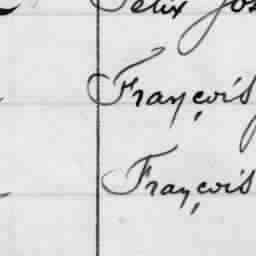 Felix Jos
François
François